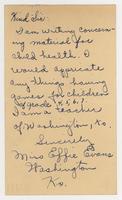 Kind Sir:
I am writing concern-
ing material for
child health. I
would appriciate
any things having
games for children
of grade 4, 5, 6, &
I am a teacher
of Washington, Ko.
Sincerely
Mrs Effie Evans
Washington
Ko.